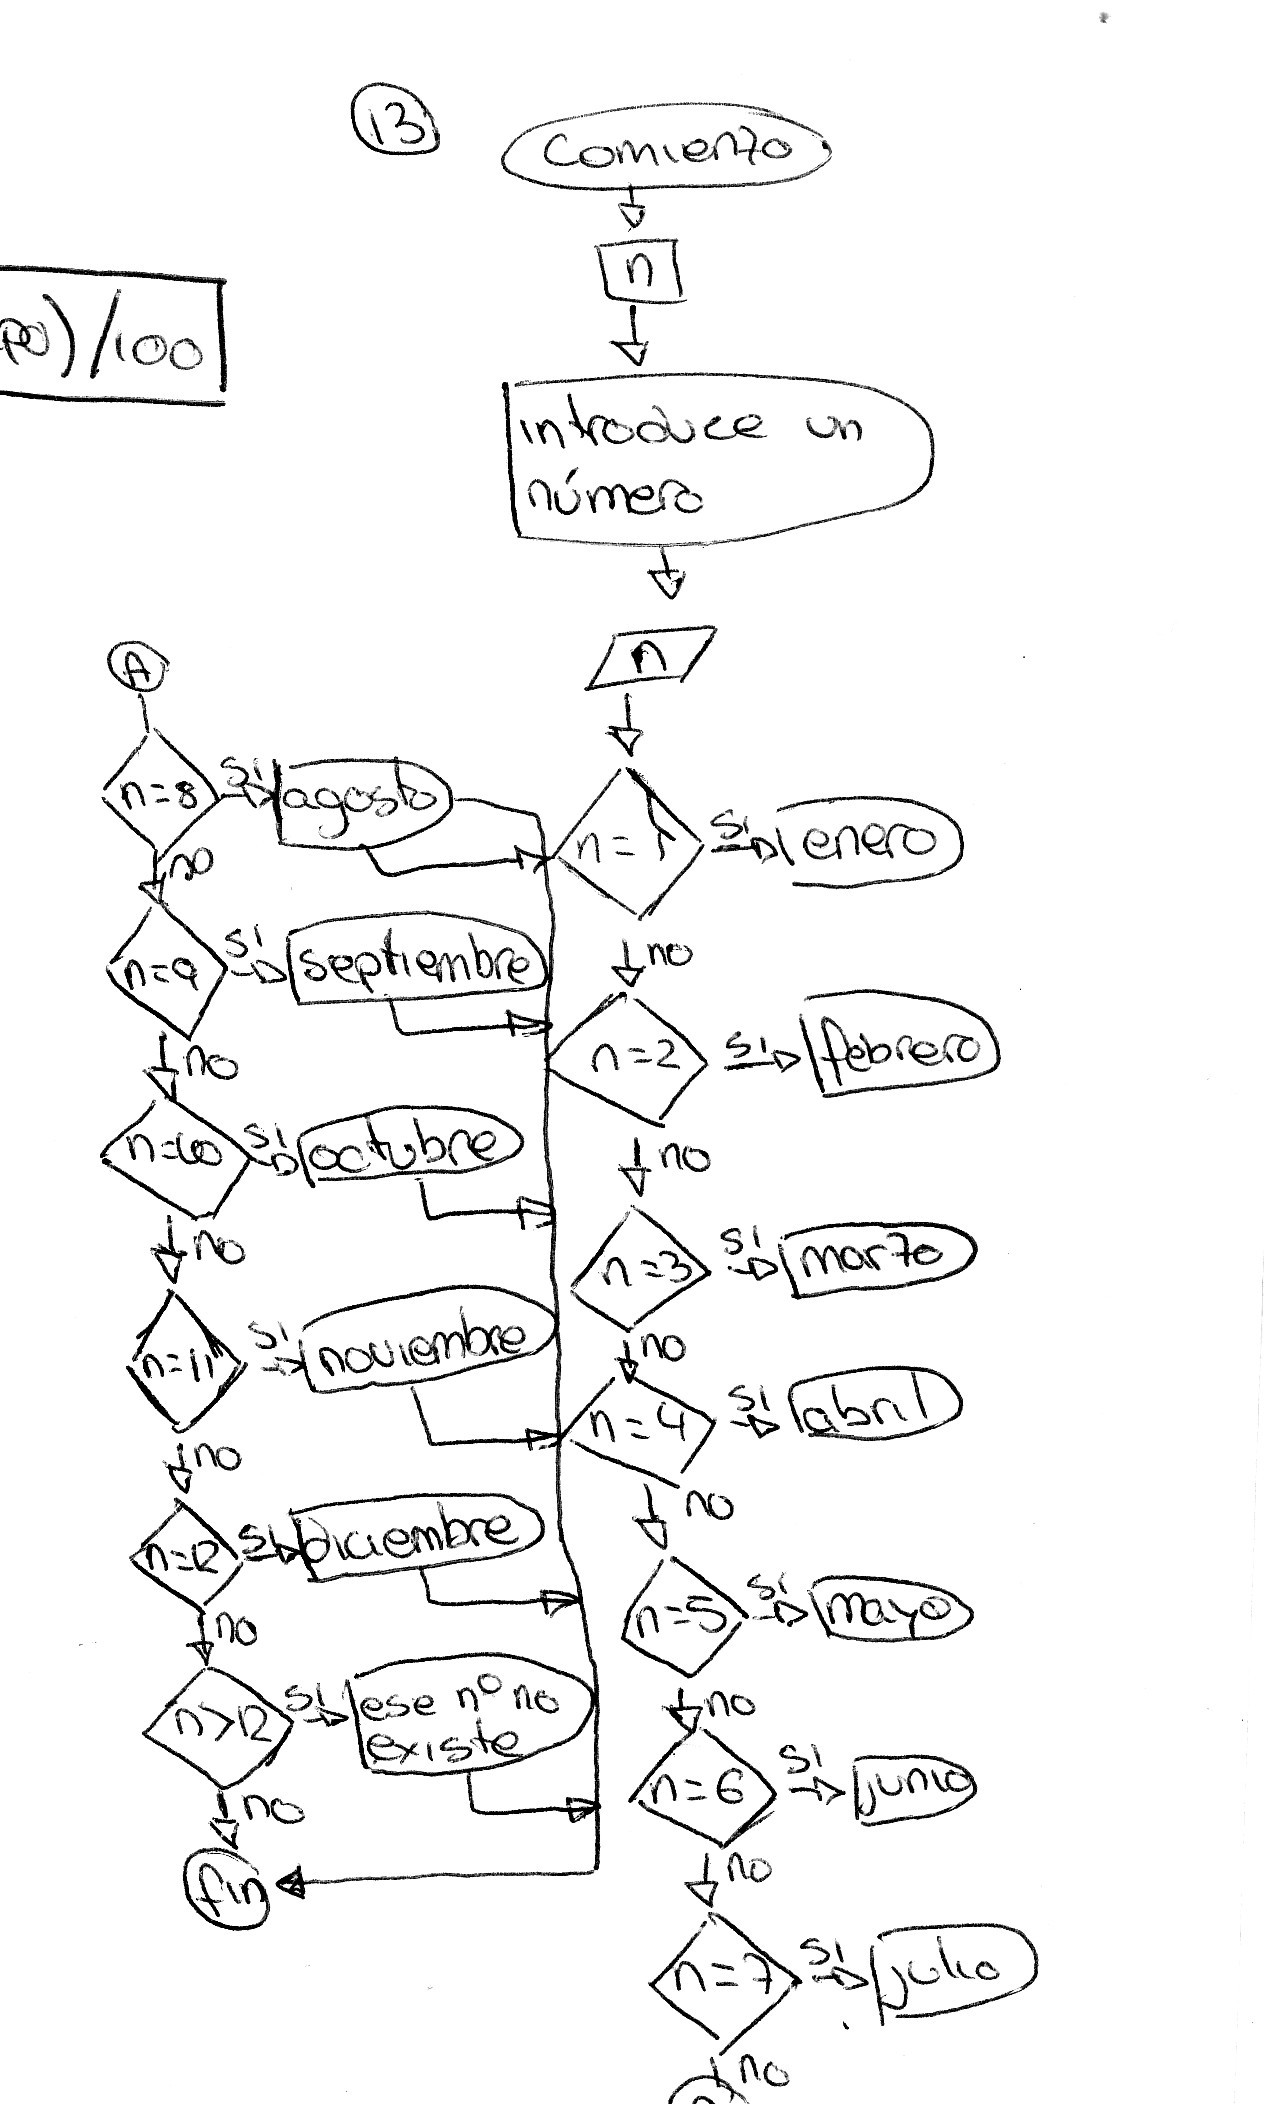 13
Comienzo
n
introduce un
número
n
n=1
sí
enero
no
n=2
sí
febrero
no
n=3
sí
marzo
no
n=4
sí
abril
no
n=5
sí
mayo
no
n=6
sí
junio
no
n=7
sí
julio
no
A
n=8
sí
agosto
no
n=9
sí
septiembre
no
n=10
sí
octubre
no
n=11
sí
noviembre
no
n=12
sí
diciembre
no
n>12
sí
ese nº no
existe
no
fin
)/100